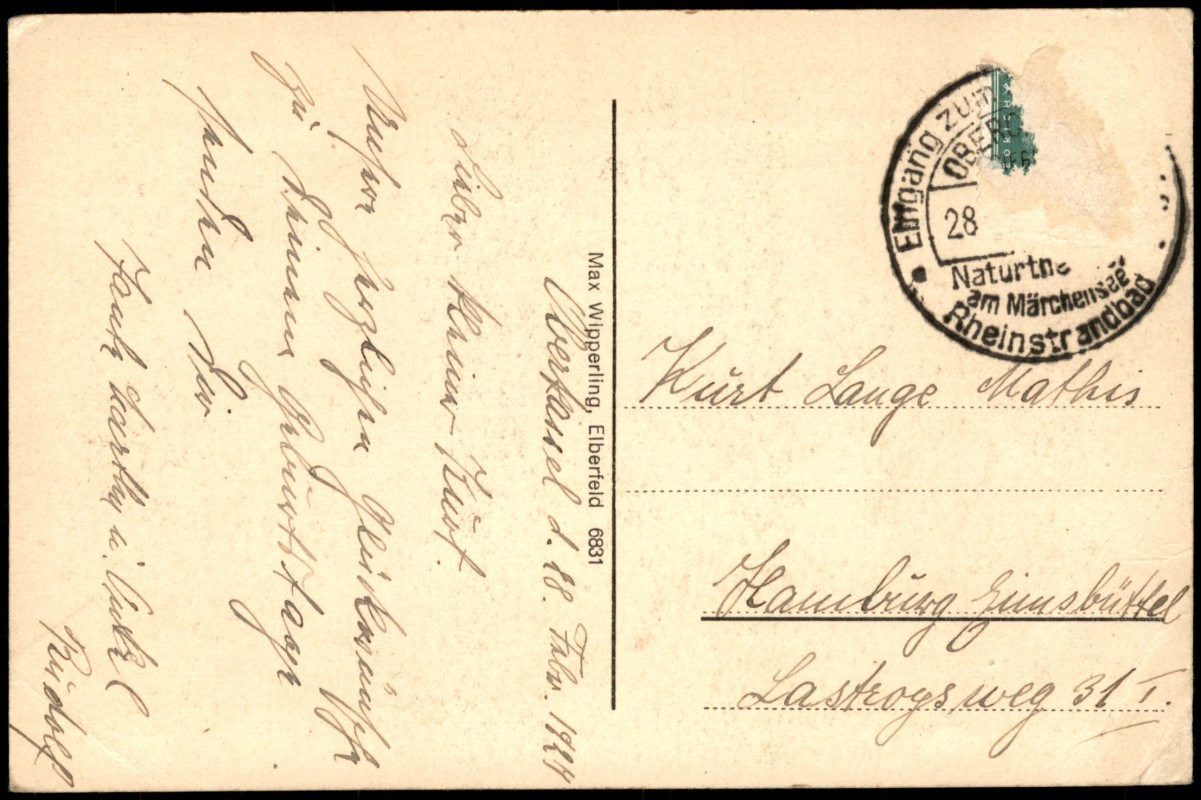 Oberkassel d. 28. Febr. 1924
Lieber kleiner Kurt.
Unsere herzlichen Glückwünsche
zu Deinem Geburtstage
senden Dir
Tante u. Onkel
Rudolf
Max Wipperling, Elberfeld 6831
Eingang zum
OBERC
28
Naturthe
am Märchensee
Rheinstrandbad
Kurt Lange Mathis
Hamburg Eimsbüttel
Lastropsweg 31 I.